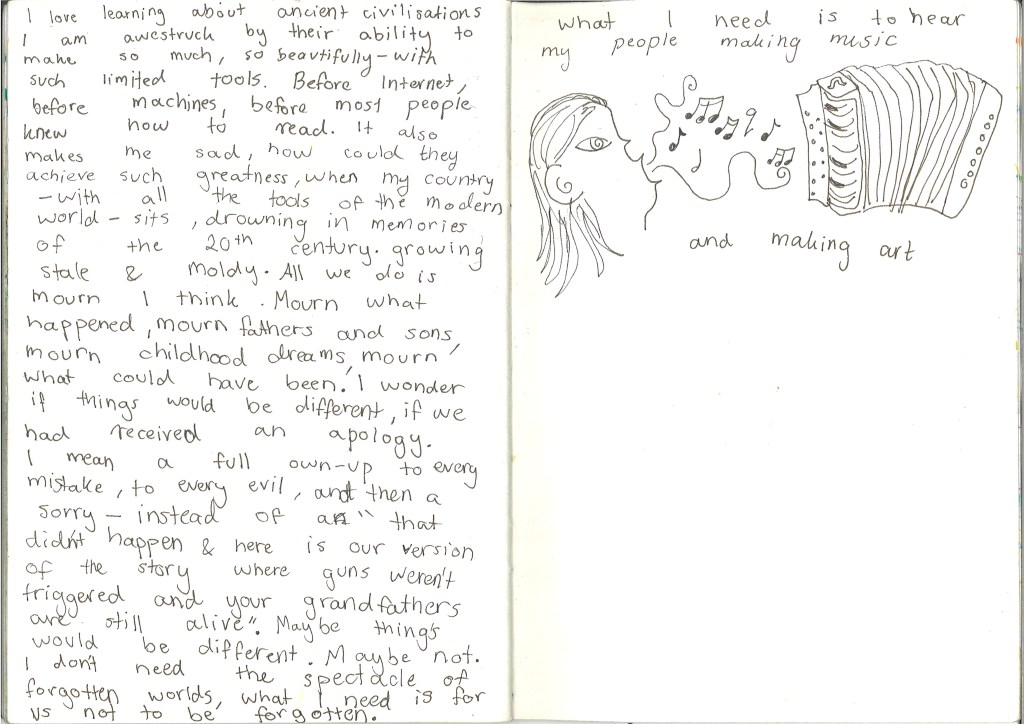 I love learning about ancient civilisations
I am awestruck by their ability to
make so much, so beautifully – with
such limited tools. Before Internet,
before machines, before most people
knew how to read. It also
makes me sad, how could they
achieve such greatness, when my country
– with all the tools of the modern
world – sits, drowning in memories
of the 20th century. growing
stale & moldy. All we do is
mourn I think. Mourn what
happened, mourn fathers and sons,
mourn childhood dreams, mourn
what could have been. I wonder
if things would be different, if we
had received an apology.
I mean a full own-up to every
mistake, to every evil, and then a
sorry – instead of a " that
didn't happen & here is our version
of the story where guns weren't
triggered and your grandfathers
are still alive". Maybe things
would be different. Maybe not.
I don't need the spectacle of
forgotten worlds, what I need is for
us not to be forgotten.
what I need is to hear
my people making music
and making art